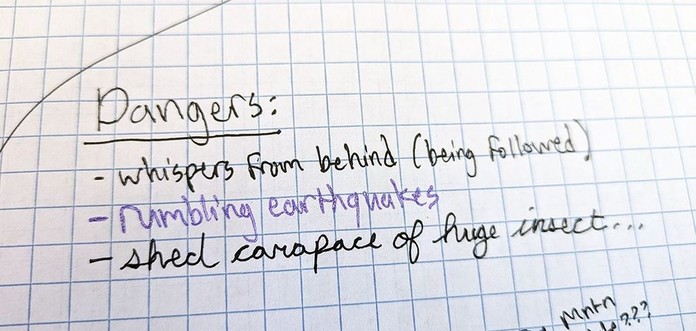 Dangers:
- whispers from behind (being followed)
- rumbling earthquakes
- shed carapace of huge insect...